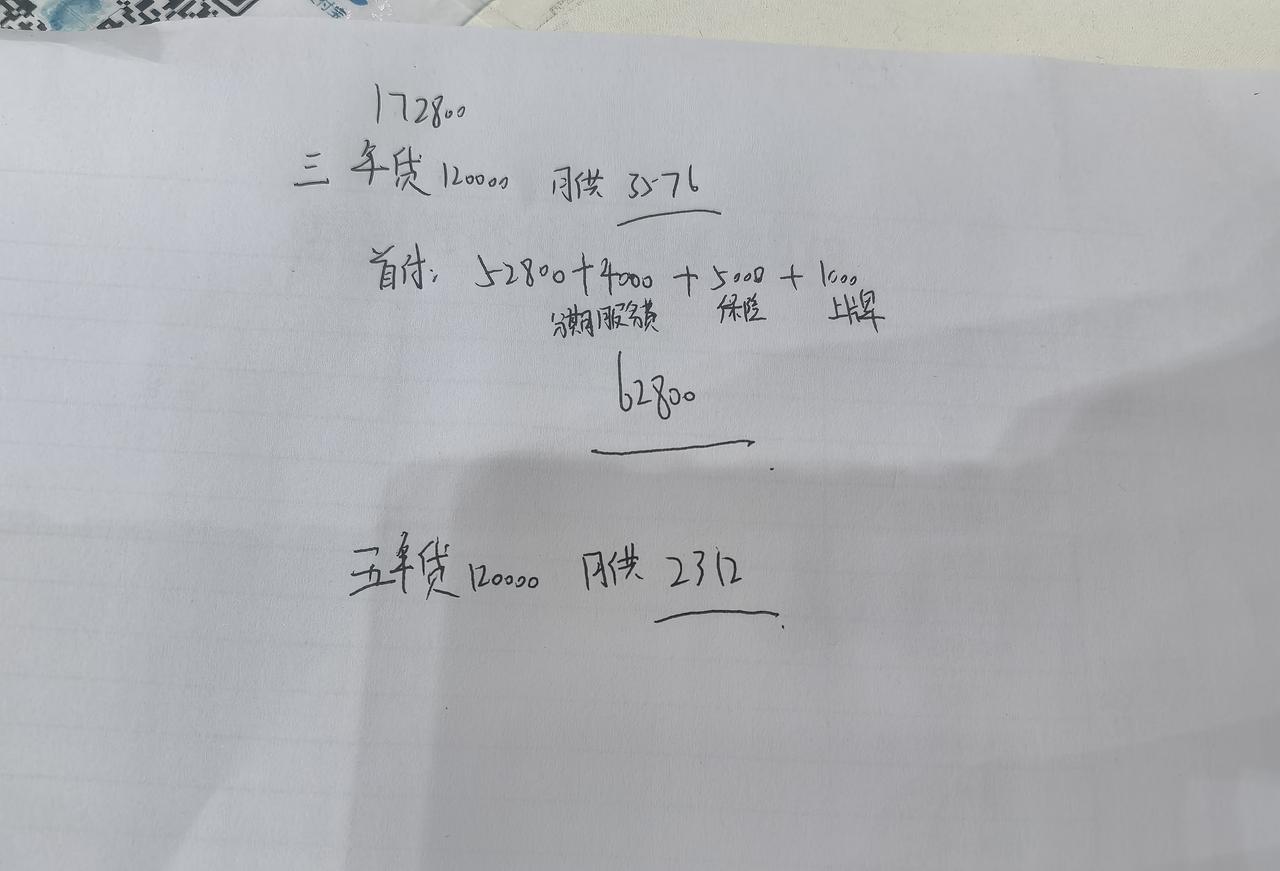 付宝
172800
三年贷120000 月供 3576
首付: 52800+4000+5000+1000
分期服务费 保险 上牌
62800
五年贷120000 月供 2312